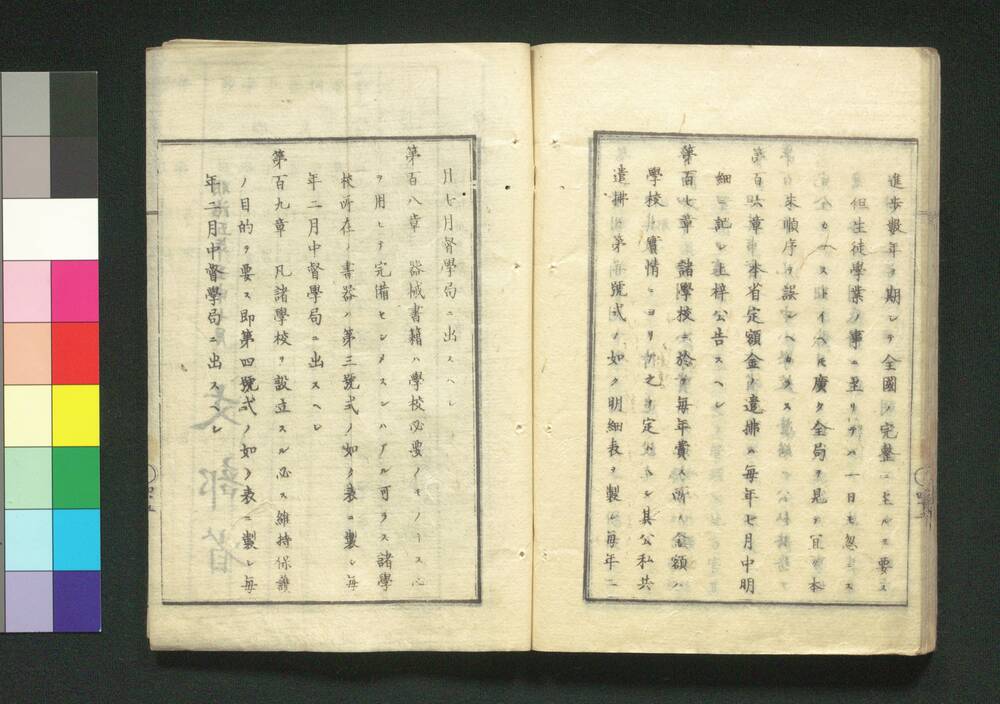 進歩数年ヲ期シテ全國ノ完整ニ至ルヲ要ス
但生徒學業ノ事ニ至リテハ一日モ忽ニス
ヘカラストイヘトモ廣ク全局ヲ見テ宜ク本
末順序ヲ誤ルヘカラス
第百六章 本省定額金ノ遣拂ハ毎年七月中明
細ニ記シ上梓公告スヘシ
第百七章 諸學校ニ於テ毎年費ス所ノ金額ハ
學校ノ實情ニヨリテ之ヲ定ム
其公私共
遣拂
號式ノ如ク明細表ヲ製シ毎年二
月七月督學局ニ出スヘシ
第百八章 器械書籍ハ學校必要ノモノトス必
ヲ用ヒテ完備セシメスンハアル可ラス諸學
校所在ノ書器ハ第三號式ノ如ク表ニ製シ毎
年二月中督學局ニ出スヘシ
第百九章 凡諸學校ヲ設立スル必ス維持保護
ノ目的ヲ要ス即第四號式ノ如ク表ニ製シ毎
年二月中督學局ニ出スヘシ